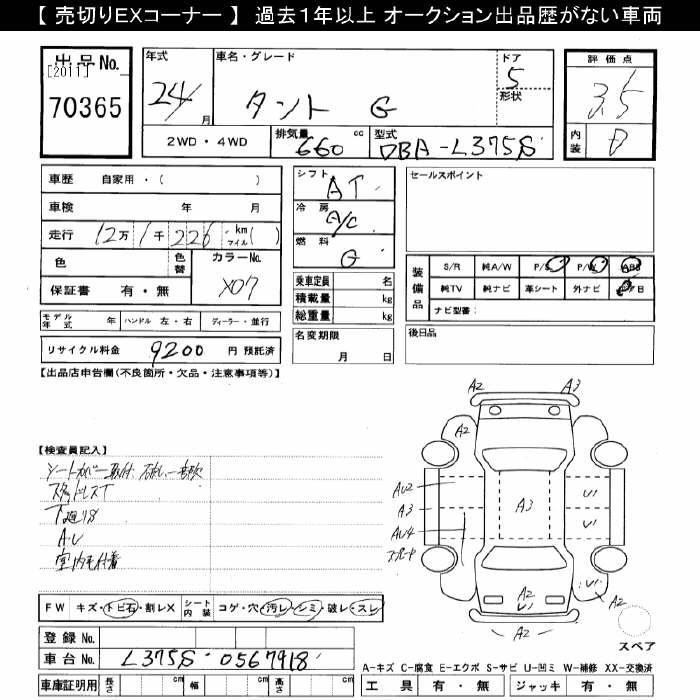 【 売切りEXコーナー 】 過去1年以上 オークション出品歴がない車両
出品No.
[2011]
70365
年式
24/
月
車名・グレード
タント G
ドア
5
形状
評価点
3.5
内装
2WD・4WD
排気量
660 cc
型式
DBA-L375S
車歴 自家用・( )
車検 年 月
走行 12万 1千 226 km マイル ( )
色
色替
カラーNo.
X07
保証書 有・無
モデル年式 年 ハンドル 左・右 ディーラー・並行
リサイクル料金 9200 円 預託済
シフト
AT
冷房
A/C
燃料
G
乗車定員 名
積載量 kg
総重量 kg
名変期限
月 日
セールスポイント
装備品
S/R 純A/W P/S P/W ABS
純TV 純ナビ 革シート 外ナビ
ナビ型番:
後日品
【出品店申告欄(不良箇所・欠品・注意事項等)】
【検査員記入】
シートカバー取付
スタッドレスT
下廻りS
A・U
室内毛付着
A2
A3
A2
AU2
A3
AU4
A3
U1
U1
U1
A2
U1
A2
A2
スペア
FW キズ・トビ石・割レX シート内装 コゲ・穴・汚レ・シミ・破レ・スレ
登録No.
車台No. L375S-0567918
車庫証明用 長さ cm 幅 cm 高さ cm
A-キズ C-腐食 E-エクボ S-サビ U-凹ミ W-補修 XX-交換済
工具 有・無 ジャッキ 有・無